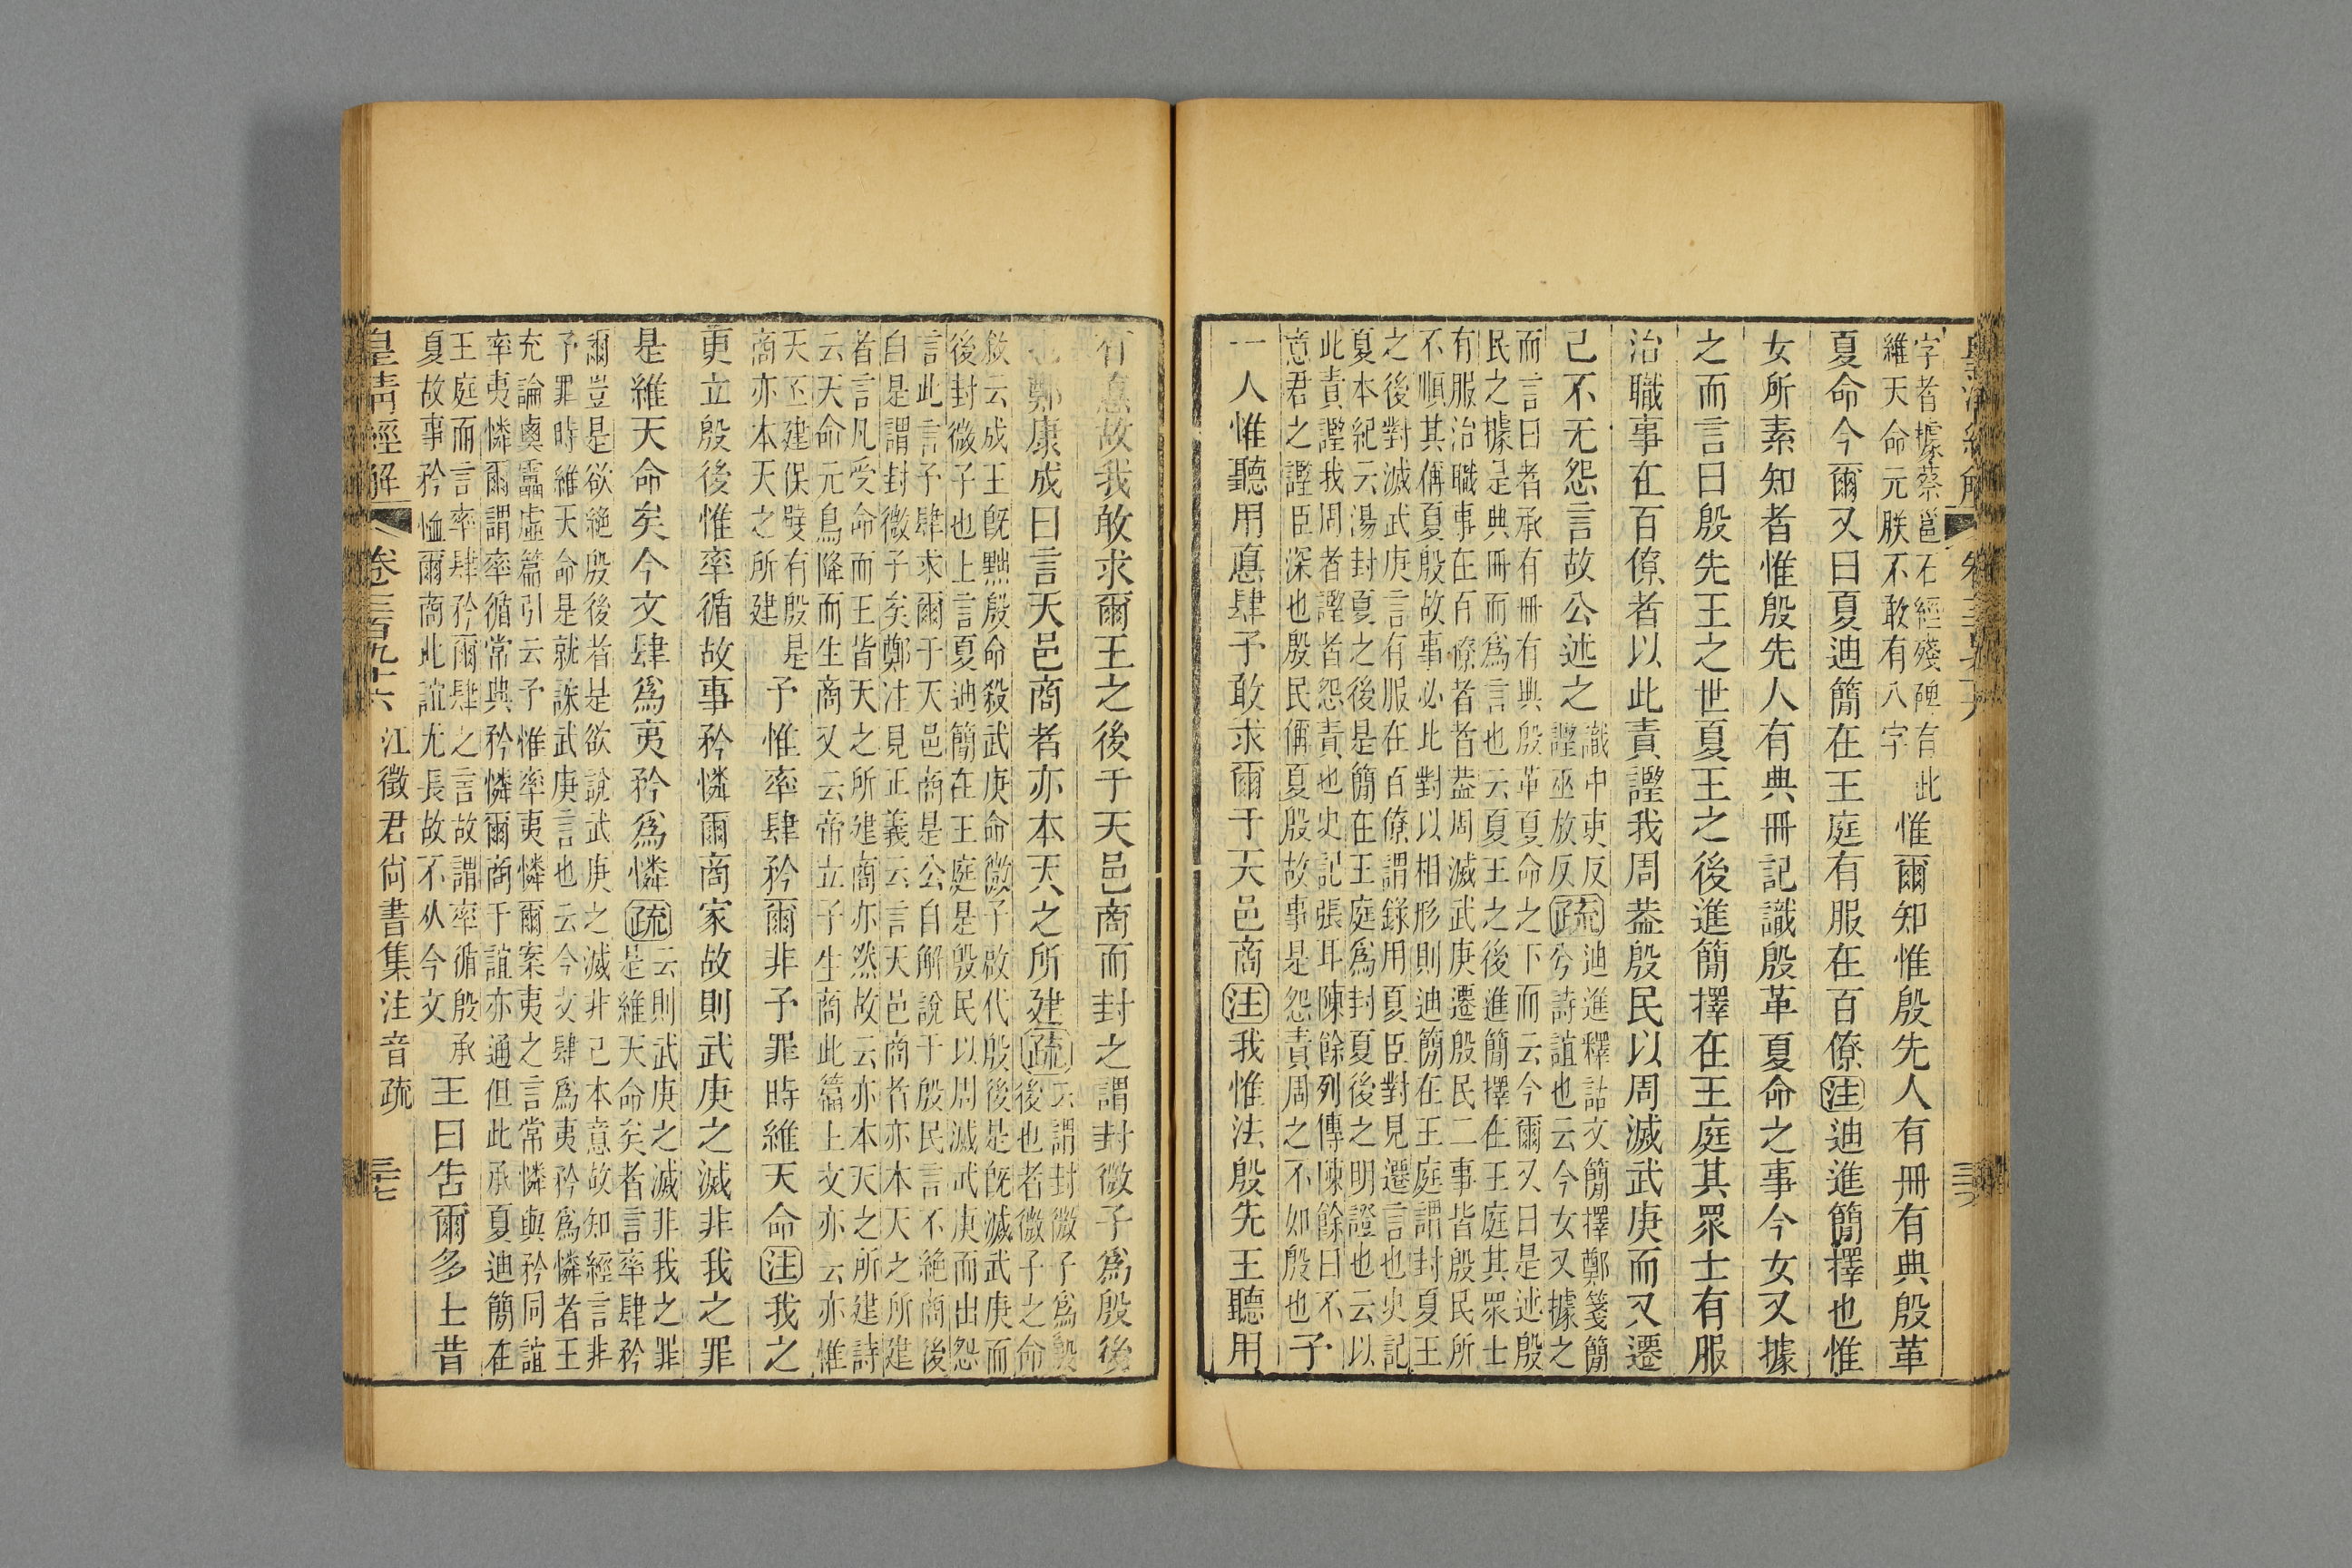 皇清經解
字者據蔡邕石經殘碑有此
維天命元朕不敢有八字
惟爾知惟殷先人有冊有典殷革
夏命今爾又曰夏迪簡在王庭有服在百僚注迪進簡擇也惟
女所素知者惟殷先人有典冊記識殷革夏命之事今女又據
之而言曰殷先王之世夏王之後進簡擇在王庭其眾士有服
治職事在百僚者以此責𧫢我周葢殷民以周滅武庚而又遷
己不无怨言故公述之
識中吏反
𧫢巫放反
疏
迪進釋詁文簡擇鄭箋簡
兮詩誼也云今女又據之
而言曰者承有冊有典殷革夏命之下而云今爾又曰是述殷
民之據是典冊而爲言也云夏王之後進簡擇在王庭其眾士
有服治職事在百僚者者葢周滅武庚遷殷民二事皆殷民所
不順其偁夏殷故事必此對以相形則迪簡在王庭謂封夏王
之後對滅武庚言有服在百僚謂錄用夏臣對見遷言也史記
夏本紀云湯封夏之後是簡在王庭爲封夏後之明證也云以
此責𧫢我周者𧫢者怨責也史記張耳陳餘列傳陳餘曰不
意君之𧫢臣深也殷民偁夏殷故事是怨責周之不如殷也
予
一人惟聽用悳肆予敢求爾于天邑商注我惟法殷先王聽用
有悳故我敢求爾王之後于天邑商而封之謂封微子爲殷後
也鄭康成曰言天邑商者亦本天之所建疏
云謂封微子爲殷
後也者微子之命
敘云成王既黜殷命殺武庚命微子啟代殷後是既滅武庚而
後封微子也上言夏迪簡在王庭是殷民以周滅武庚而出怨
言此言予肆求爾于天邑商是公自解說于殷民言不絕商後
自是謂封微子矣鄭注見正義云言天邑商者亦本天之所建
者言凡受命而王皆天之所建商亦然故云亦本天之所建詩
云天命元鳥降而生商又云帝立子生商此篇上文亦云亦惟
天丕建保㚤有殷是
商亦本天之所建
予惟率肆矜爾非予罪時維天命注我之
更立殷後惟率循故事矜憐爾商家故則武庚之滅非我之罪
是維天命矣今文肆爲夷矜爲憐疏
云則武庚之滅非我之罪
是維天命矣者言率肆矜
爾豈是欲絕殷後者是欲說武庚之滅非己本意故知經言非
予罪時維天命是就誅武庚言也云今文肆爲夷矜爲憐者王
充論衡靁虛篇引云予惟率夷憐爾案夷之言常憐與矜同誼
率夷憐爾謂率循常典矜憐爾商于誼亦通但此承夏迪簡在
王庭而言率肆矜爾肆之言故謂率循殷承
夏故事矜恤爾商此誼尤長故不从今文
王曰告爾多士昔
皇清經解 卷三百九十六 江徵君尚書集注音疏 三十七